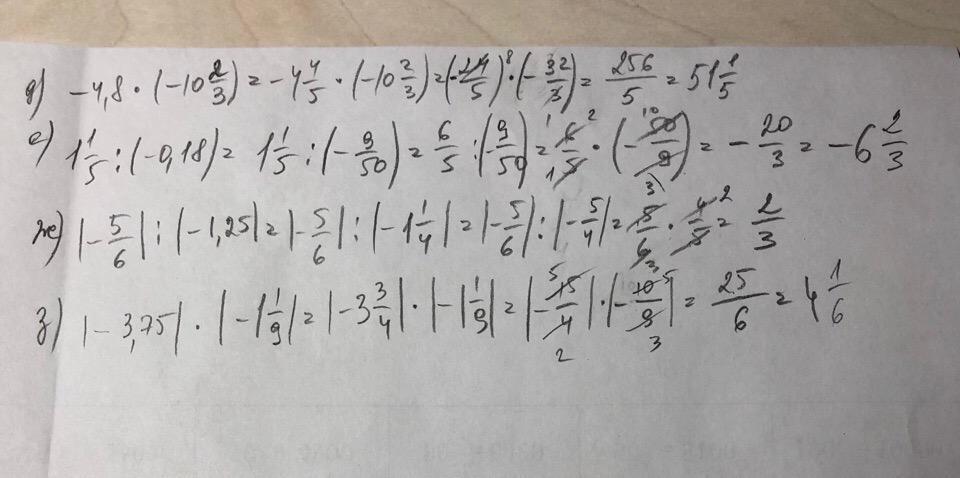 д) -4,8 · (-10 2/3) = -4 4/5 · (-10 2/3) = (-24/5)⁸ · (-32/3) = 256/5 = 51 1/5
е) 1 1/5 : (-0,18) = 1 1/5 : (-9/50) = 6/5 : (-9/50) = 6/5 · (-50/9) = -20/3 = -6 2/3
ж) |-5/6| : |-1,25| = |-5/6| : |-1 1/4| = |-5/6| : |-5/4| = 5/6 · 4/5 = 2/3
з) |-3,75| · |-1 1/9| = |-3 3/4| · |-1 1/9| = |-15/4| · |-10/9| = 25/6 = 4 1/6